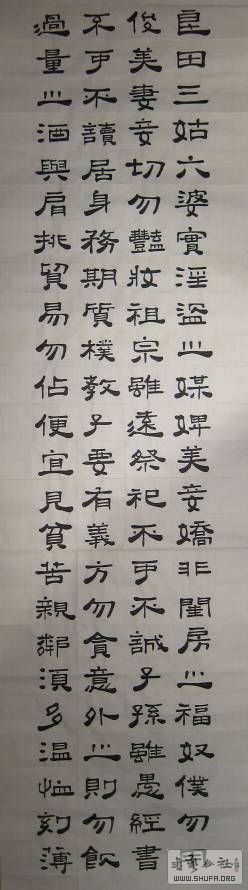 良田三姑六婆實淫盜之媒婢美妾嬌非閨房之福奴僕勿用
俊美妻妾切勿豔妝祖宗雖遠祭祀不可不誠子孫雖愚經書
不可不讀居身務期質樸教子要有義方勿貪意外之財勿飲
過量之酒與肩挑貿易勿佔便宜見貧苦親鄰須多溫恤刻薄
书法公社
WWW.SHUFA.ORG